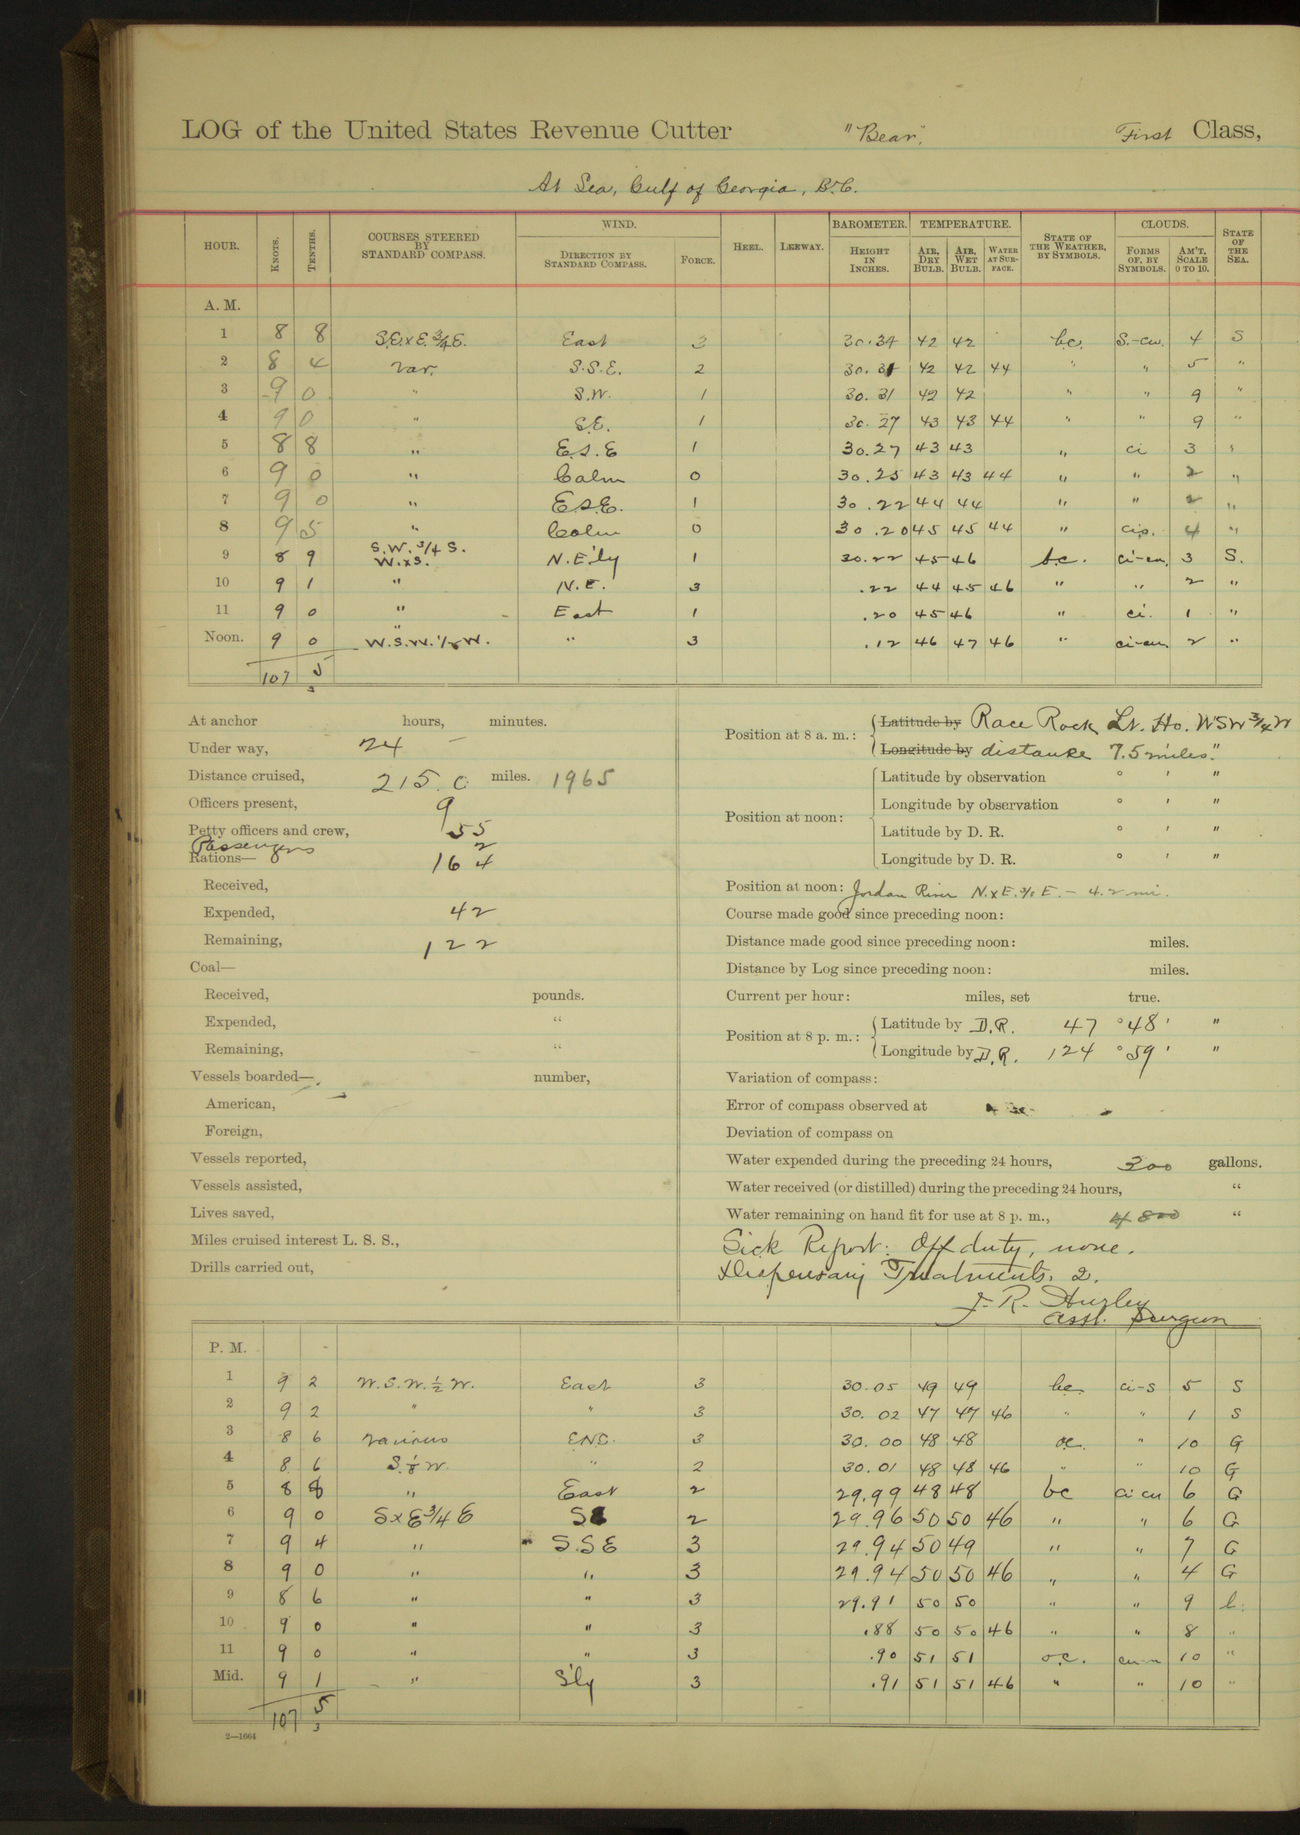 LOG of the United States Revenue Cutter "Bear", First Class,
At Sea, Gulf of Georgia, B.C.
HOUR. KNOTS. TENTHS. COURSES STEERED BY STANDARD COMPASS. WIND. DIRECTION BY STANDARD COMPASS. FORCE. HEEL. LEEWAY. BAROMETER. HEIGHT IN INCHES. TEMPERATURE. AIR, DRY BULB. AIR, WET BULB. WATER AT SURFACE. STATE OF THE WEATHER, BY SYMBOLS. CLOUDS. FORMS OF, BY SYMBOLS. AM'T, SCALE 0 TO 10. STATE OF THE SEA.
A. M.
1 8 8 S.E.xE.3/4E. East 3 30.34 42 42 bc. S.-cu. 4 S
2 8 4 var. S.S.E. 2 30.31 42 42 44 " " 5 "
3 9 0 " S.W. 1 30.31 42 42 " " 9 "
4 9 0 " S.E. 1 30.27 43 43 44 " " 9 "
5 8 8 " E.S.E 1 30.27 43 43 " ci 3 "
6 9 0 " Calm 0 30.25 43 43 44 " " 2 "
7 9 0 " ESE. 1 30.22 44 44 " " 2 "
8 9 5 " Calm 0 30.20 45 45 44 " 4 "
S.W. 3/4 S.
9 8 9 W.xS. N.E'ly 1 30.22 45 46 b.c. ci-cu. 3 S.
10 9 1 " N.E. 3 .22 44 45 46 " " 2 "
11 9 0 " East 1 .20 45 46 " ci. 1 "
Noon. 9 0 W.S.W. 1/2 W. " 3 .12 46 47 46 " ci-cu. 2 "
107 5
3
At anchor hours, minutes.
Under way, 24 —
Distance cruised, 215.0 miles. 1965
Officers present, 9
Petty officers and crew, 55
Passengers 2
Rations— 164
Received,
Expended, 42
Remaining, 122
Coal—
Received, pounds.
Expended, "
Remaining, "
Vessels boarded— number,
American,
Foreign,
Vessels reported,
Vessels assisted,
Lives saved,
Miles cruised interest L. S. S.,
Drills carried out,
Position at 8 a. m.: Latitude by Race Rock Lt. Ho. WSW 3/4 W
Longitude by distance 7.5 miles."
Position at noon: Latitude by observation ° ' "
Longitude by observation ° ' "
Latitude by D. R. ° ' "
Longitude by D. R. ° ' "
Position at noon: Jordan River N.xE.3/4 E. - 4.2 mi.
Course made good since preceding noon:
Distance made good since preceding noon: miles.
Distance by Log since preceding noon: miles.
Current per hour: miles, set true.
Position at 8 p. m.: Latitude by D.R. 47 ° 48 ' "
Longitude by D.R. 124 ° 59 ' "
Variation of compass:
Error of compass observed at
Deviation of compass on
Water expended during the preceding 24 hours, 300 gallons.
Water received (or distilled) during the preceding 24 hours, "
Water remaining on hand fit for use at 8 p. m., 4800 "
Sick Report: Off duty, none.
Dispensary Treatments. 2.
J. R. Hurley
Asst. Surgeon
P. M.
1 9 2 W.S.W. 1/2 W. East 3 30.05 49 49 bc. ci-s 5 S
2 9 2 " " 3 30.02 47 47 46 " " 1 S
3 8 6 various ENE. 3 30.00 48 48 oc. " 10 G
4 8 6 S. 1/8 W. " 2 30.01 48 48 46 " " 10 G
5 8 8 " East 2 29.99 48 48 bc ci cu 6 G
6 9 0 SxE3/4 E SE 2 29.96 50 50 46 " " 6 G
7 9 4 " S.S E 3 29.94 50 49 " " 7 G
8 9 0 " " 3 29.94 50 50 46 " " 4 G
9 8 6 " " 3 29.91 50 50 " " 9
10 9 0 " " 3 .88 50 50 46 " " 8 "
11 9 0 " " 3 .90 51 51 o.c. cu-n 10 "
Mid. 9 1 " S'ly 3 .91 51 51 46 " " 10 "
107 5
3
2—1664